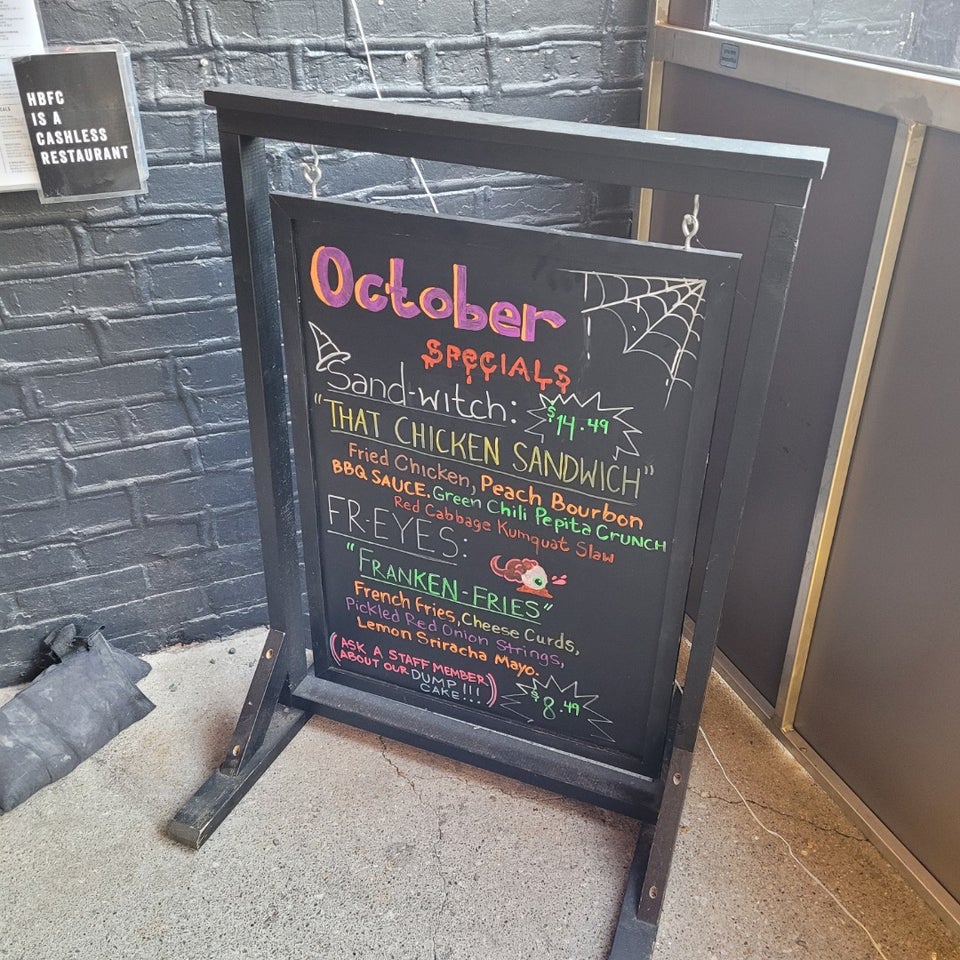 HBFC
IS A
CASHLESS
RESTAURANT
October
SPECIALS
Sand-witch: $14.49
"THAT CHICKEN SANDWICH"
Fried Chicken, Peach Bourbon
BBQ SAUCE, Green Chili Pepita CRUNCH
Red Cabbage Kumquat Slaw
FR-EYES:
"FRANKEN-FRIES"
French Fries, Cheese Curds,
Pickled Red Onion Strings,
Lemon Sriracha Mayo.
(ASK A STAFF MEMBER
ABOUT OUR DUMP !!!
CAKE!...)
$8.49